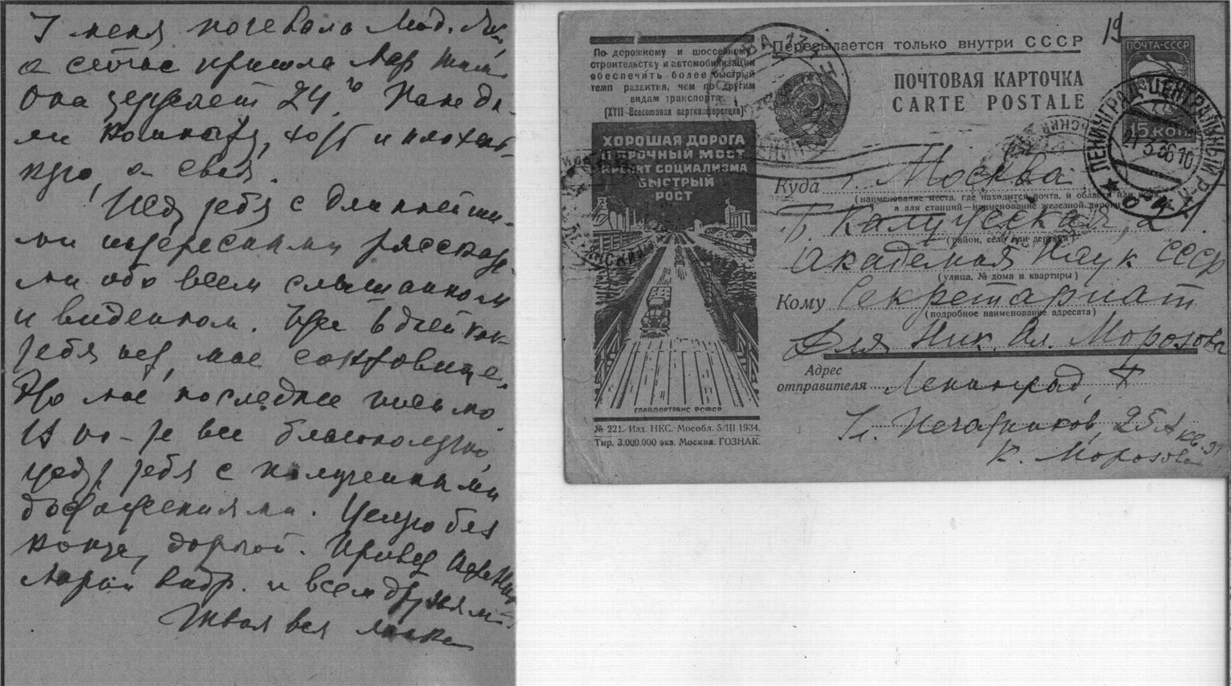 У меня ночевала Люд.
а сейчас пришла Мар
Она уезжает 24го. Наня
ли комнату, хотя и плохень
кую, а своя.
Жду тебя с длиннейши
ми интересными рассказа
ми обо всем слышанном
и виденном.
тебя нет, мое сокровище.
мое последнее письмо
все благополучно,
тебя с полученными
Целую без
конца, дорогой. Привет
и всем друзьям.
Твоя вся
19
По дорожному и шоссейному
строительству и автомобилизации
обеспечить более быстрый
темп развития, чем по другим
видам транспорта.
(XVII Всесоюзная партконференция)
ХОРОШАЯ ДОРОГА
И ПРОЧНЫЙ МОСТ
КРЕПЯТ СОЦИАЛИЗМА
БЫСТРЫЙ
РОСТ
ГЛАВДОРТРАНС РСФСР
№ 221. Изд. НКС. Мособл. 5/III 1934.
Тир. 3.000.000 экз. Москва. ГОЗНАК.
Пересылается только внутри СССР
ПОЧТОВАЯ КАРТОЧКА
CARTE POSTALE
ПОЧТА-СССР
15 КОП.
МОСКВА
ЛЕНИНГРАД-ЦЕНТРАЛЬНЫЙ
Куда г. Москва
(наименование места, где находится почта, и область или край,
а для станций—наименование железной дороги)
Б. Калужская, 21.
(район, село или деревня)
Академия Наук СССР
(улица, № дома и квартиры)
Кому Секретариат
(подробное наименование адресата)
Для Ник. Ал. Морозова
Адрес
отправителя Ленинград,
Ул. Печатников, 25А кв.
К. Морозова